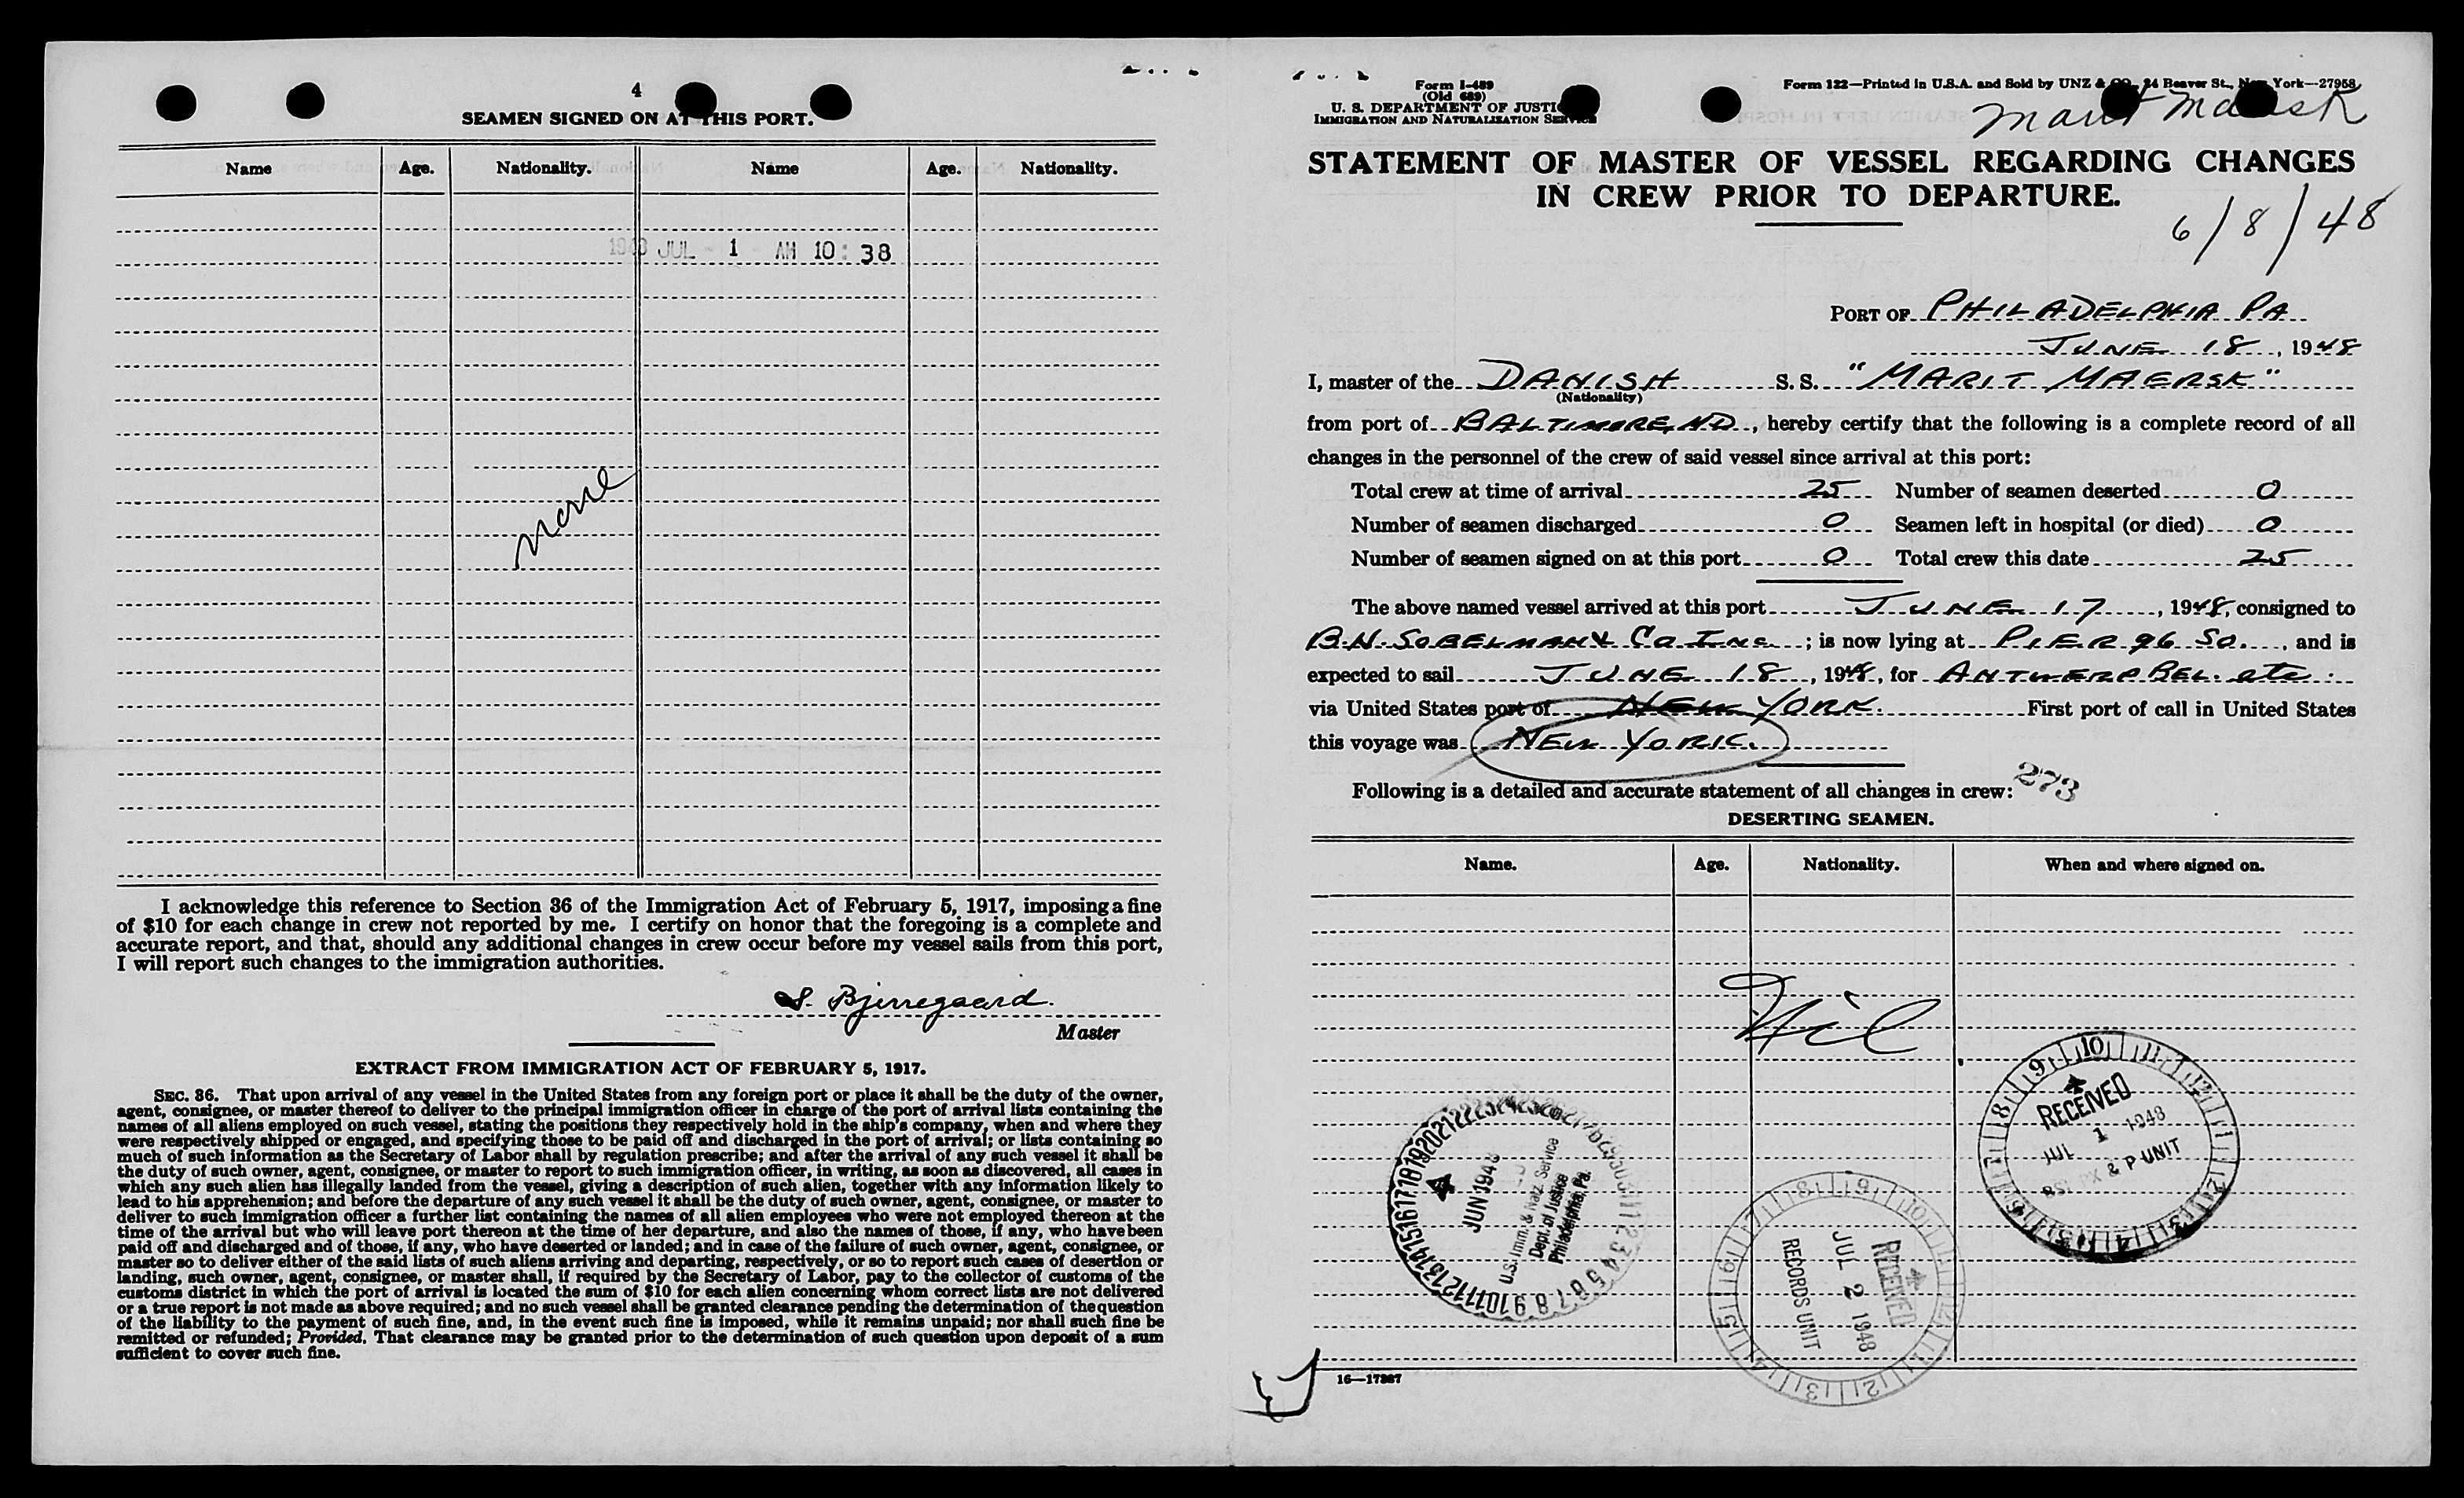 4
SEAMEN SIGNED ON AT THIS PORT.
Name Age. Nationality. Name Age. Nationality.
1948 JUL - 1 AM 10:38
none
I acknowledge this reference to Section 36 of the Immigration Act of February 5, 1917, imposing a fine
of $10 for each change in crew not reported by me. I certify on honor that the foregoing is a complete and
accurate report, and that, should any additional changes in crew occur before my vessel sails from this port,
I will report such changes to the immigration authorities.
S. Bjerregaard.
Master
EXTRACT FROM IMMIGRATION ACT OF FEBRUARY 5, 1917.
SEC. 36. That upon arrival of any vessel in the United States from any foreign port or place it shall be the duty of the owner,
agent, consignee, or master thereof to deliver to the principal immigration officer in charge of the port of arrival lists containing the
names of all aliens employed on such vessel, stating the positions they respectively hold in the ship's company, when and where they
were respectively shipped or engaged, and specifying those to be paid off and discharged in the port of arrival; or lists containing so
much of such information as the Secretary of Labor shall by regulation prescribe; and after the arrival of any such vessel it shall be
the duty of such owner, agent, consignee, or master to report to such immigration officer, in writing, as soon as discovered, all cases in
which any such alien has illegally landed from the vessel, giving a description of such alien, together with any information likely to
lead to his apprehension; and before the departure of any such vessel it shall be the duty of such owner, agent, consignee, or master to
deliver to such immigration officer a further list containing the names of all alien employees who were not employed thereon at the
time of the arrival but who will leave port thereon at the time of her departure, and also the names of those, if any, who have been
paid off and discharged and of those, if any, who have deserted or landed; and in case of the failure of such owner, agent, consignee, or
master so to deliver either of the said lists of such aliens arriving and departing, respectively, or so to report such cases of desertion or
landing, such owner, agent, consignee, or master shall, if required by the Secretary of Labor, pay to the collector of customs of the
customs district in which the port of arrival is located the sum of $10 for each alien concerning whom correct lists are not delivered
or a true report is not made as above required; and no such vessel shall be granted clearance pending the determination of the question
of the liability to the payment of such fine, and, in the event such fine is imposed, while it remains unpaid; nor shall such fine be
remitted or refunded; Provided, That clearance may be granted prior to the determination of such question upon deposit of a sum
sufficient to cover such fine.
Form I-489
(Old 689)
U. S. DEPARTMENT OF JUSTICE
IMMIGRATION AND NATURALIZATION SERVICE
Form 122—Printed in U.S.A. and Sold by UNZ & CO., 24 Beaver St., New York—27958
Marit Maersk
STATEMENT OF MASTER OF VESSEL REGARDING CHANGES
IN CREW PRIOR TO DEPARTURE.
6/8/48
PORT OF PHILADELPHIA PA
JUNE 18, 1948
I, master of the DANISH S. S. "MARIT MAERSK"
(Nationality)
from port of BALTIMORE, MD, hereby certify that the following is a complete record of all
changes in the personnel of the crew of said vessel since arrival at this port:
Total crew at time of arrival 25 Number of seamen deserted 0
Number of seamen discharged 0 Seamen left in hospital (or died) 0
Number of seamen signed on at this port 0 Total crew this date 25
The above named vessel arrived at this port JUNE 17, 1948, consigned to
B.H. SOBELMAN & Co Inc.; is now lying at PIER 96 So., and is
expected to sail JUNE 18, 1948, for ANTWERP BEL. etc.
via United States port of NEW YORK. First port of call in United States
this voyage was NEW YORK.
273
Following is a detailed and accurate statement of all changes in crew:
DESERTING SEAMEN.
Name. Age. Nationality. When and where signed on.
Nil
RECEIVED
JUL 1 1948
& P UNIT
JUN 1948
U.S. Imm. & Natz. Service
Dept. of Justice
Philadelphia, Pa.
RECEIVED
JUL 2 1948
RECORDS UNIT
16—17387